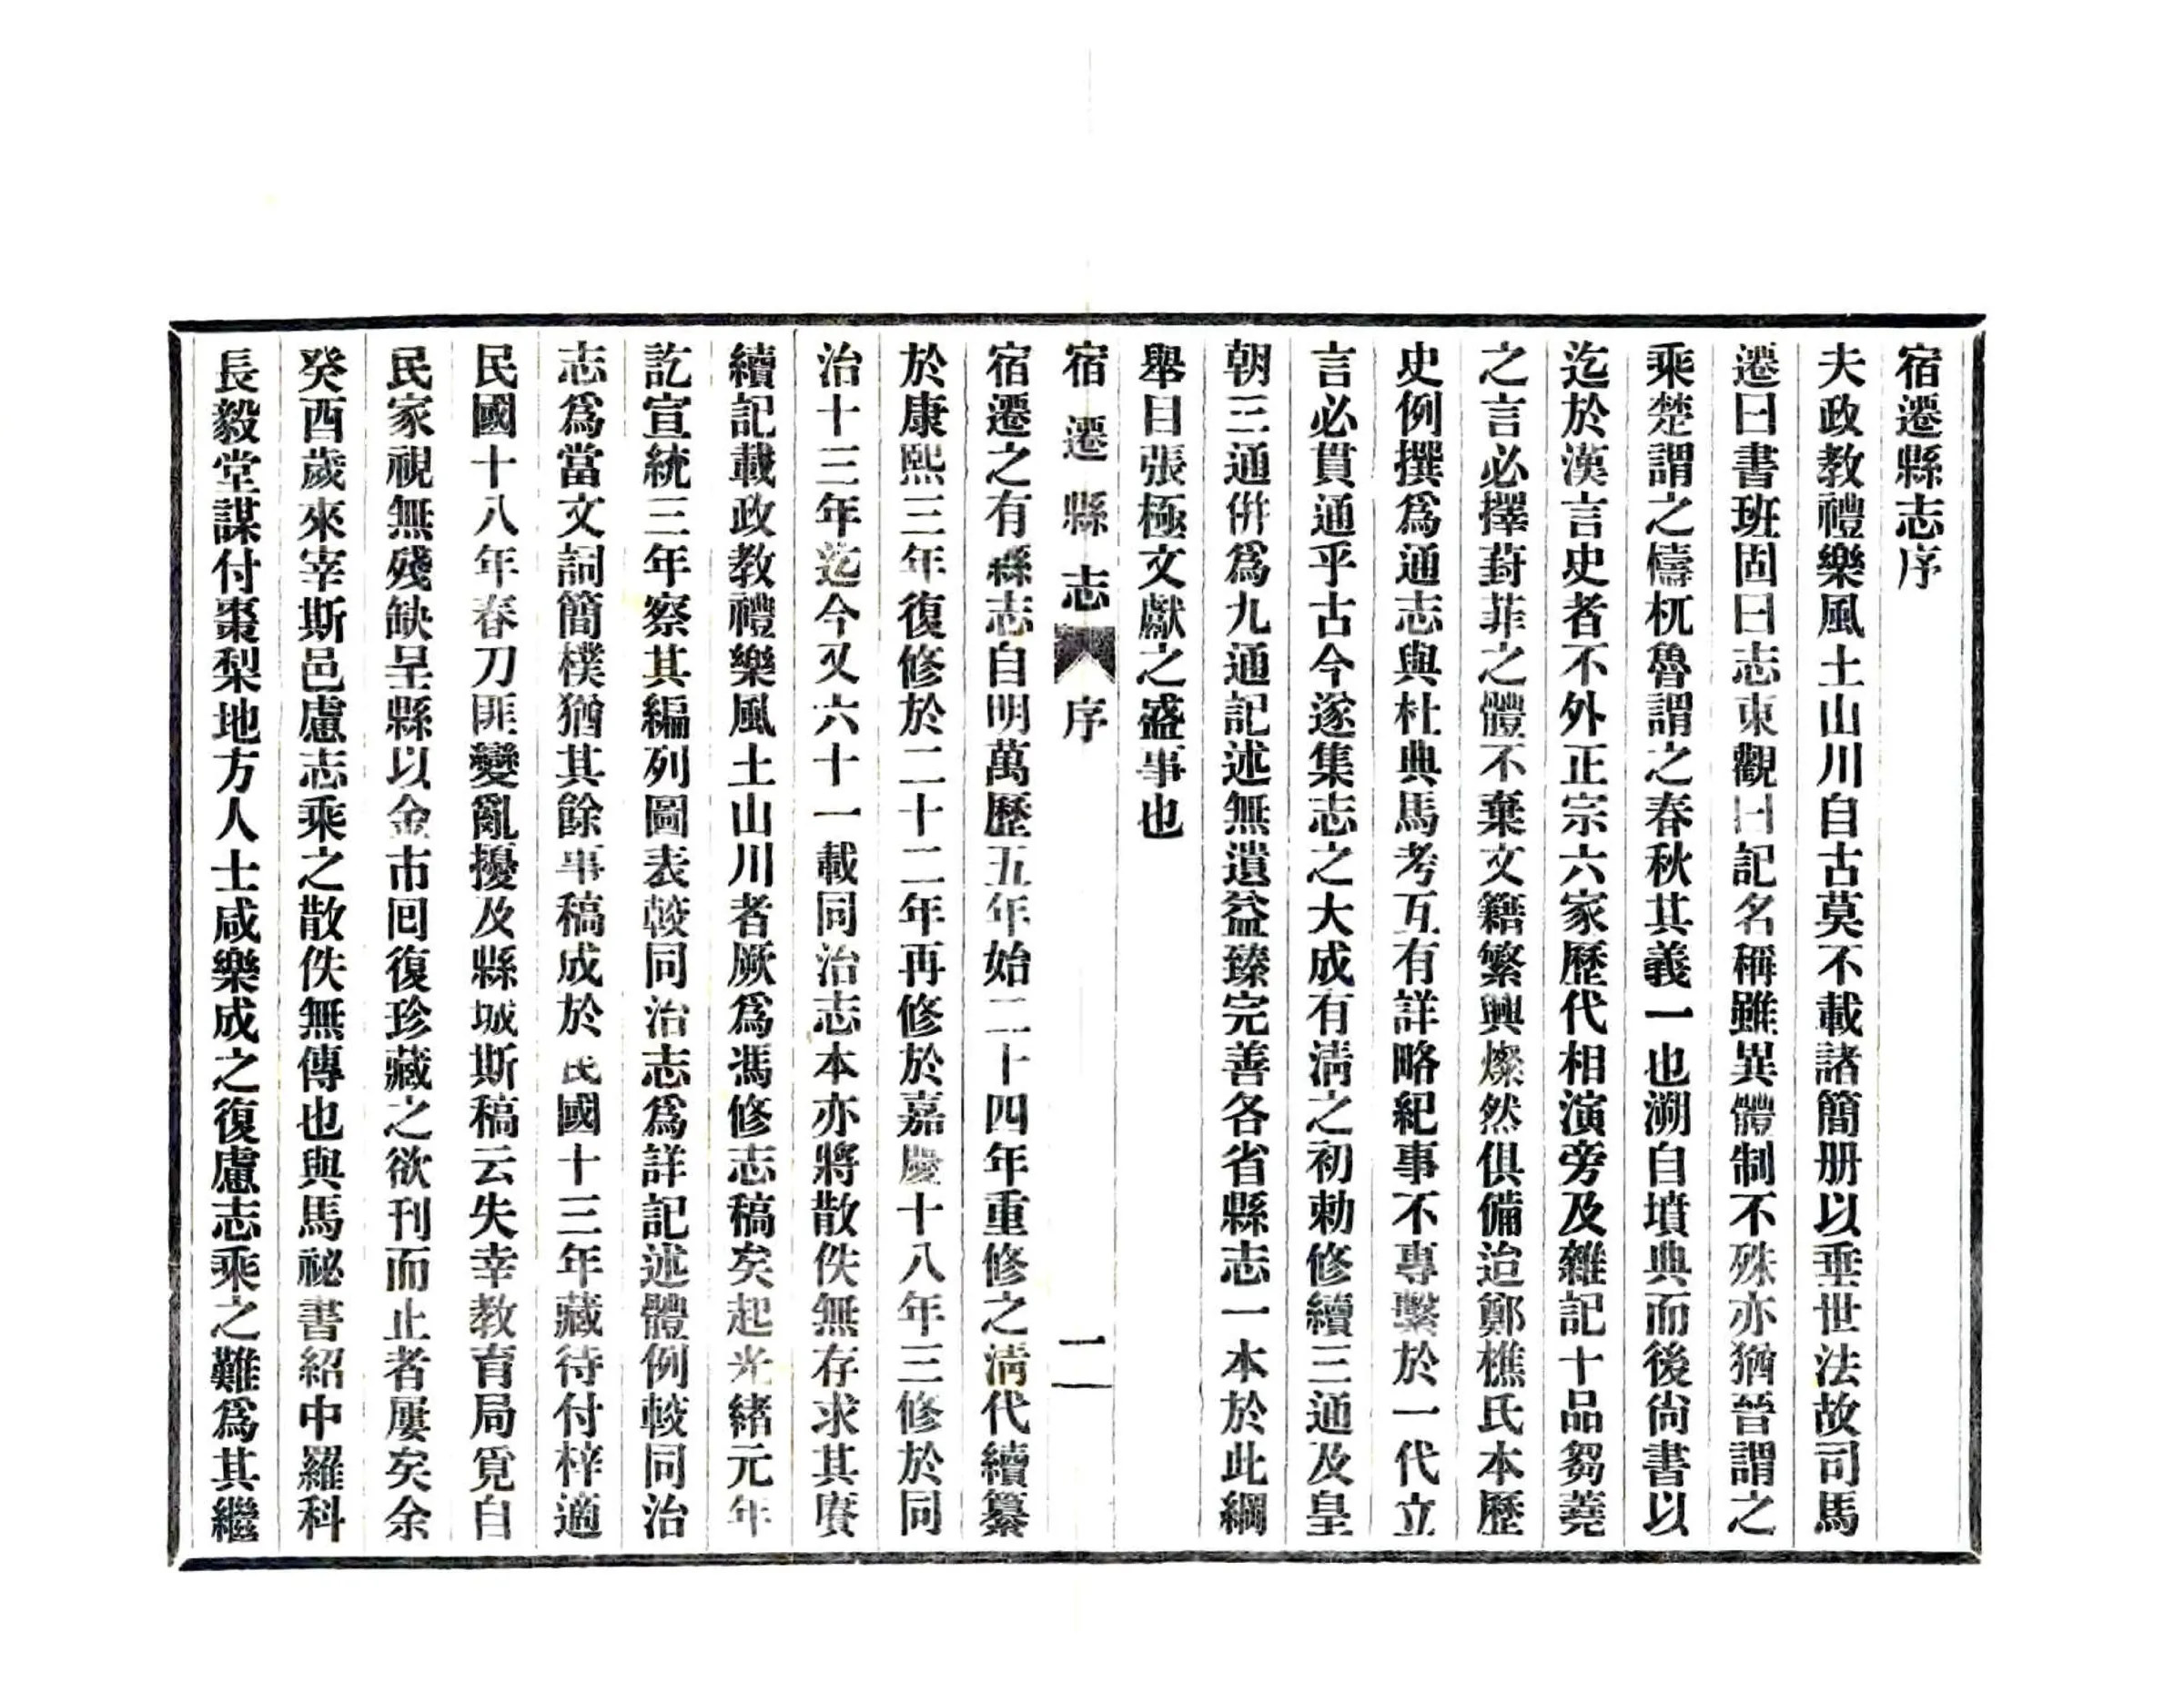 宿遷縣志序
夫政教禮樂風土山川自古莫不載諸簡册以垂世法故司馬
遷曰書班固曰志東觀曰記名稱雖異體制不殊亦猶晉謂之
乘楚謂之檮杌魯謂之春秋其義一也溯自墳典而後尙書以
迄於漢言史者不外正宗六家歷代相演旁及雜記十品芻蕘
之言必擇葑菲之體不棄文籍繁興燦然俱備迨鄭樵氏本歷
史例撰爲通志與杜典馬考互有詳略紀事不專繫於一代立
言必貫通乎古今遂集志之大成有淸之初勅修續三通及皇
朝三通倂爲九通記述無遺益臻完善各省縣志一本於此綱
舉目張極文獻之盛事也
宿遷縣志 序 二
宿遷之有縣志自明萬歷五年始二十四年重修之淸代續纂
於康熙三年復修於二十二年再修於嘉慶十八年三修於同
治十三年迄今又六十一載同治志本亦將散佚無存求其賡
續記載政教禮樂風土山川者厥爲馮修志稿矣起光緒元年
訖宣統三年察其編列圖表較同治志爲詳記述體例較同治
志爲當文詞簡樸猶其餘事稿成於民國十三年藏待付梓適
民國十八年春刀匪變亂擾及縣城斯稿云失幸教育局覓自
民家視無殘缺呈縣以金市回復珍藏之欲刊而止者屢矣余
癸酉歲來宰斯邑慮志乘之散佚無傳也與馬祕書紹中羅科
長毅堂謀付棗梨地方人士咸樂成之復慮志乘之難爲其繼